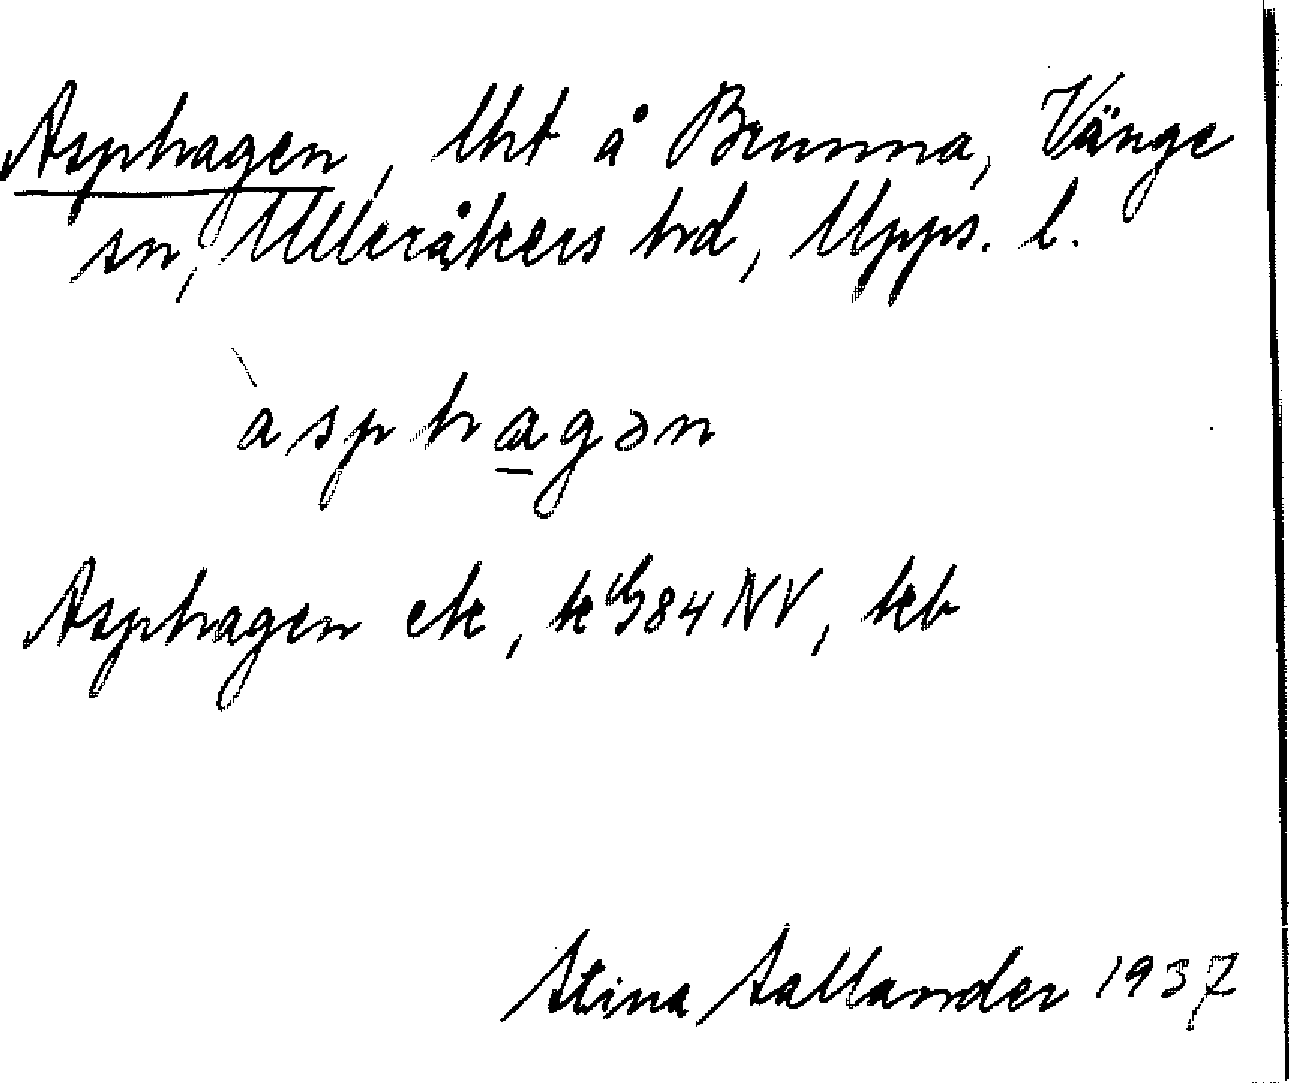 Asphagen, lht å Brunna, Vänge
sn, Ulleråkers hd, Upps. l.
àsphagən
Asphagen ek, 84 NV, kb
Stina Sallander 1937